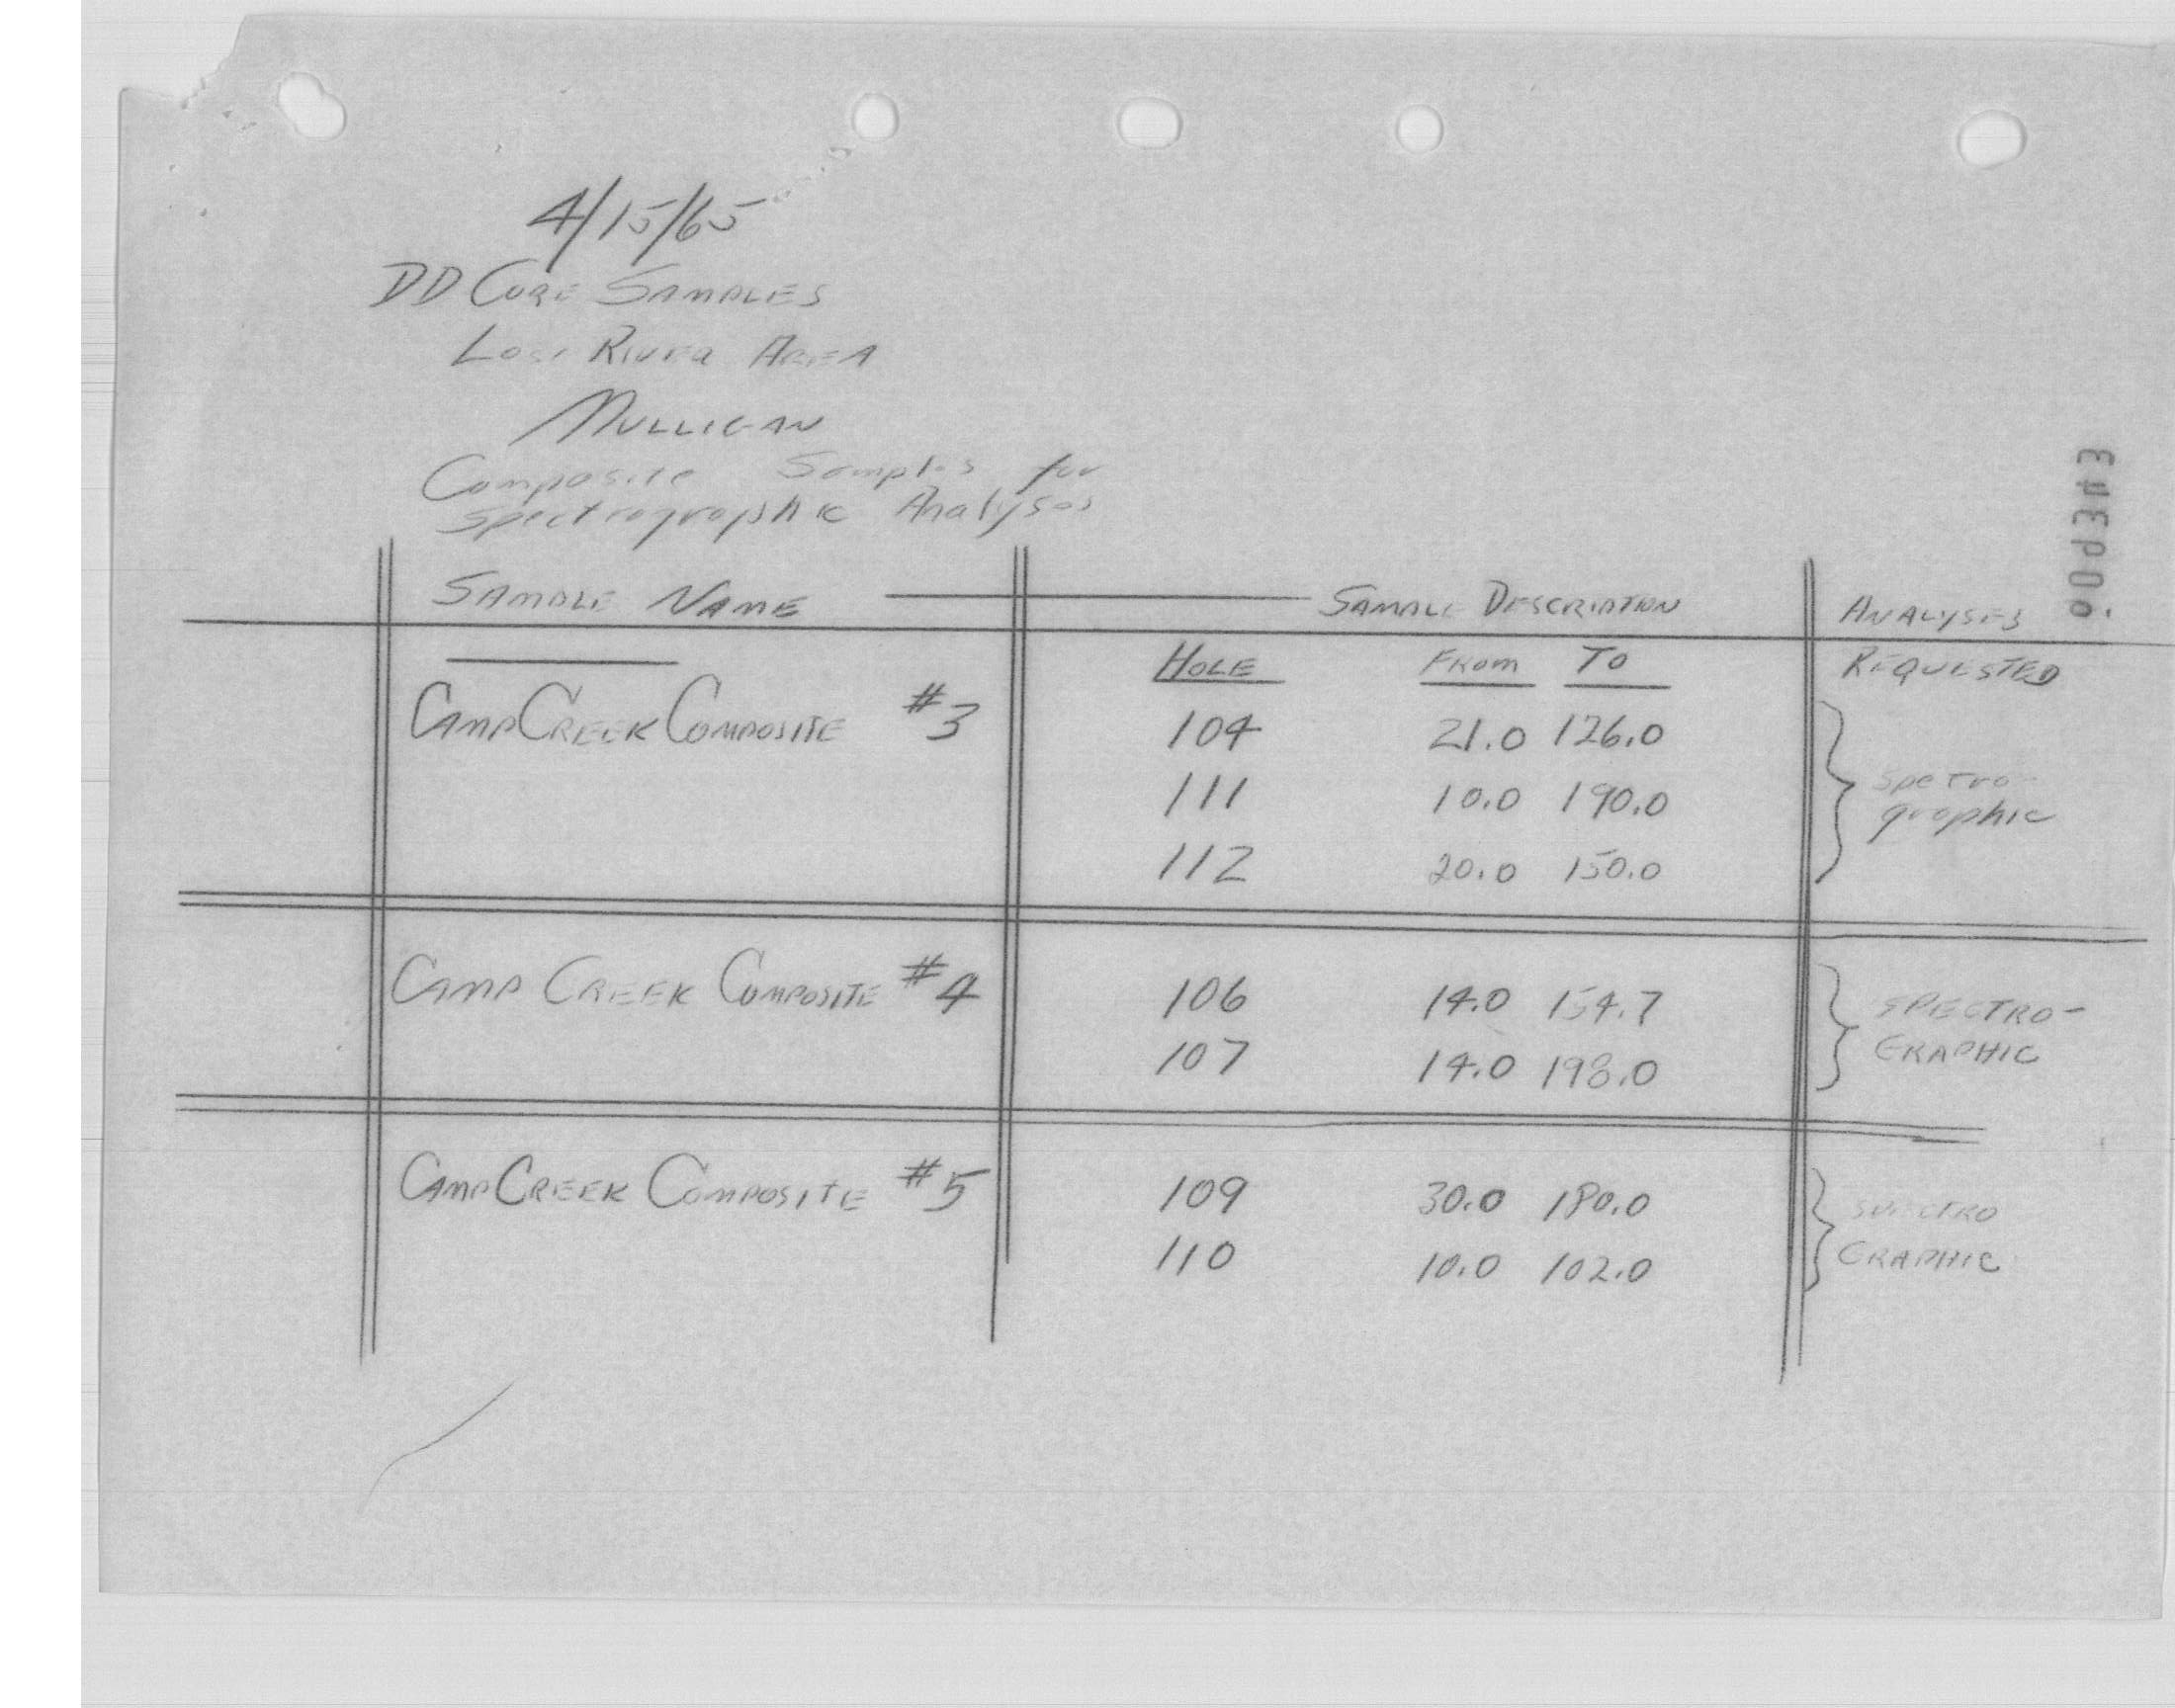 4/15/65
DD CORE SAMPLES
LOST RIVER AREA
MULLIGAN
Composite Samples for
Spectrographic Analyses
SAMPLE NAME SAMPLE DESCRIPTION ANALYSES
HOLE FROM TO REQUESTED
CAMP CREEK COMPOSITE #3 104 21.0 126.0
111 10.0 190.0 Spectro-
graphic
112 20.0 150.0
CAMP CREEK COMPOSITE #4 106 14.0 154.7 SPECTRO-
107 14.0 198.0 GRAPHIC
CAMP CREEK COMPOSITE #5 109 30.0 180.0 SPECTRO
110 10.0 102.0 GRAPHIC